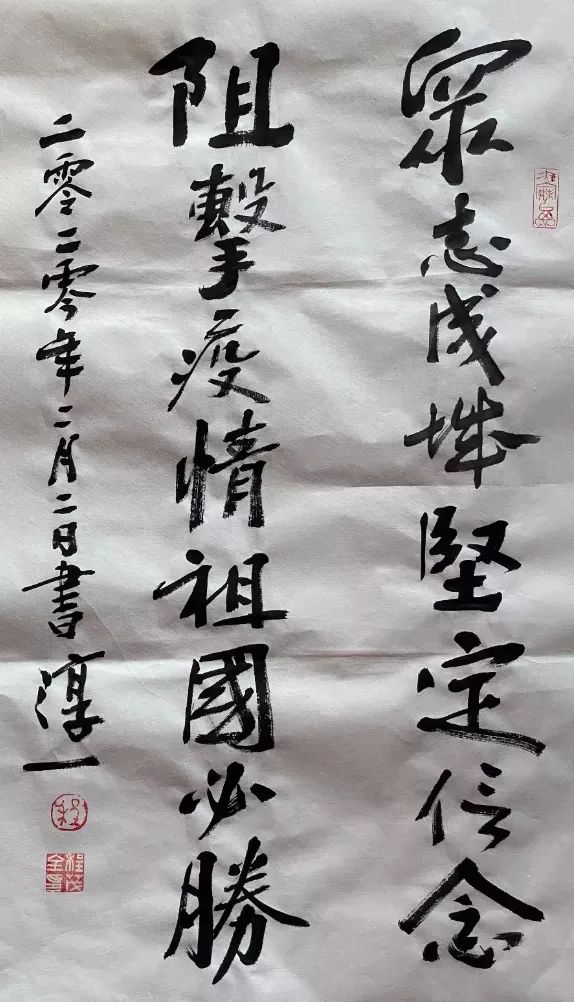 眾志成城堅定信念
阻擊疫情祖國必勝
二零二零年二月二日書淳一